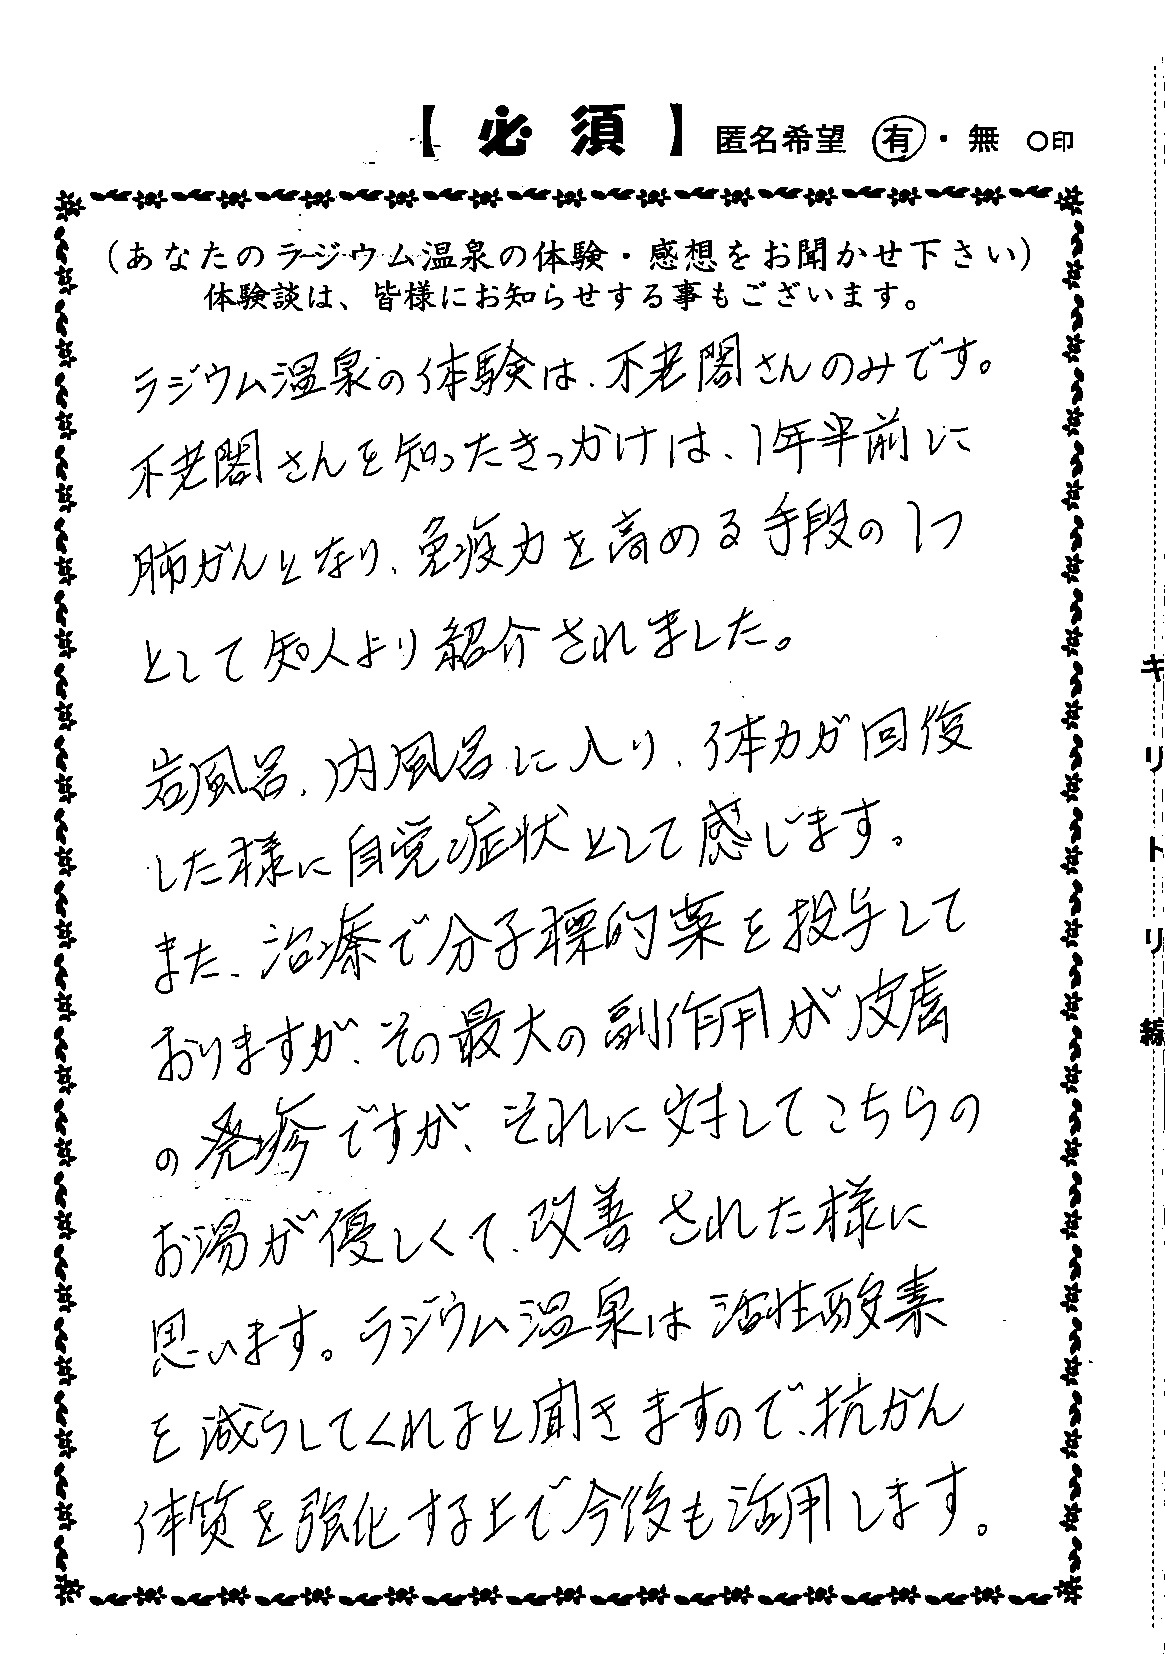 【必須】 匿名希望 有・無 〇印
(あなたのラジウム温泉の体験・感想をお聞かせ下さい)
体験談は、皆様にお知らせする事もございます。
ラジウム温泉の体験は、不老閣さんのみです。
不老閣さんを知ったきっかけは、1年半前に
肺がんとなり、免疫力を高める手段の1つ
として知人より紹介されました。
岩風呂、内風呂に入り、体力が回復
した様に自覚症状として感じます。
また、治療で分子標的薬を投与して
おりますが、その最大の副作用が皮膚
の発疹ですが、それに対してこちらの
お湯が優しくて、改善された様に
思います。ラジウム温泉は活性酸素
を減らしてくれると聞きますので、抗がん
体質を強化する上で今後も活用します。
キリトリ線